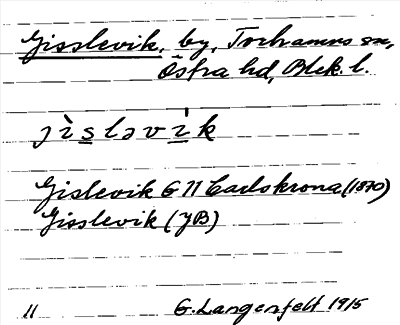 Gisslevik, by, Torhamns sn,
Östra hd, Blek. l.
jìsləvi̍k
Gislevik G 11 Carlskrona (1870)
Gisslevik (JB)
11 G. Langenfelt 1915